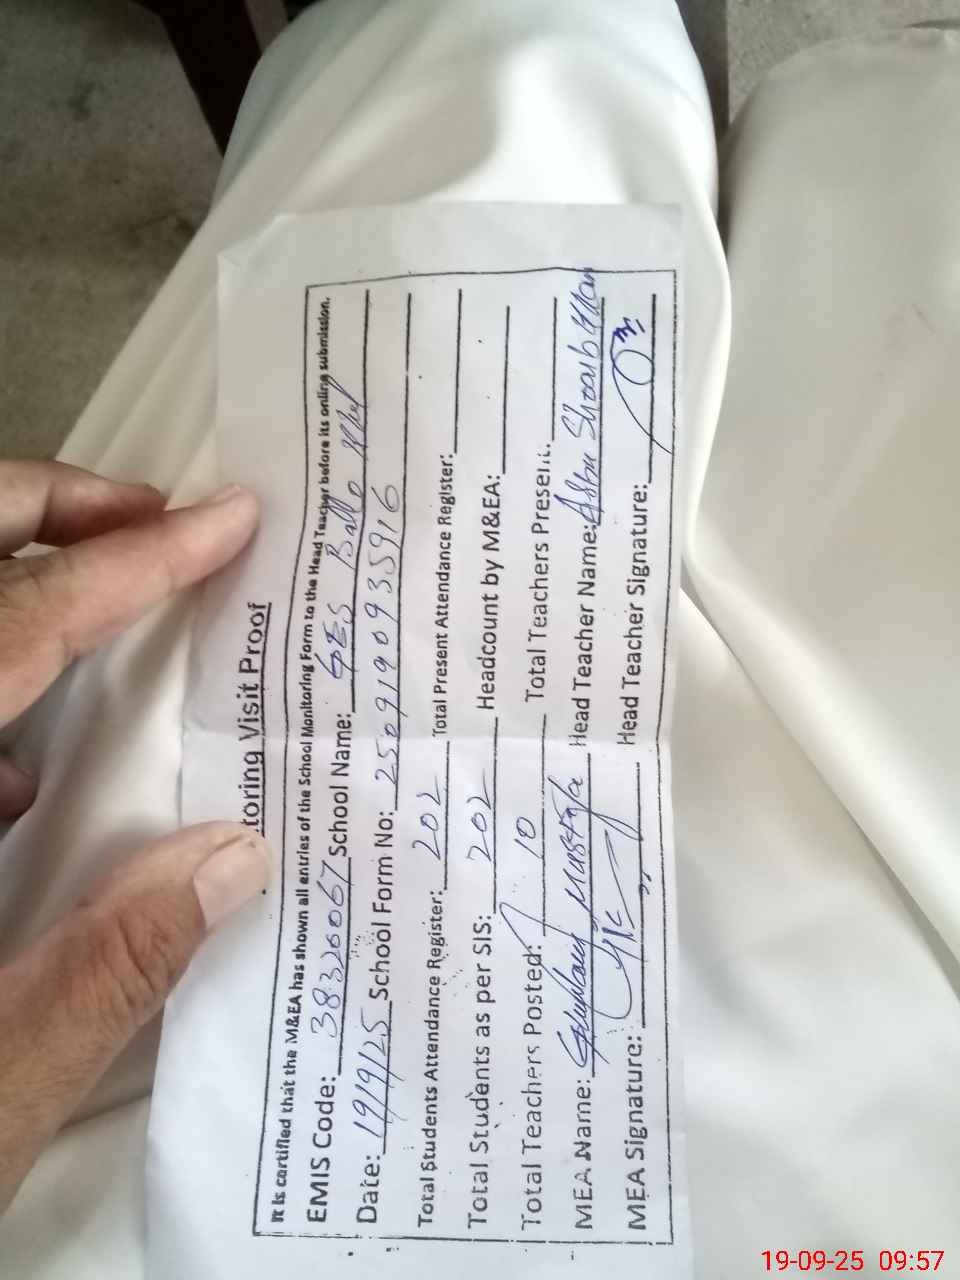 toring Visit Proof
It is certified that the M&EA has shown all entries of the School Monitoring Form to the Head Teacher before its online submission.
EMIS Code: 38320067 School Name: GES Balo Khel
Date: 19/9/25 School Form No: 2509190935916
Total Students Attendance Register: 202 Total Present Attendance Register:
Total Students as per SIS: 202 Headcount by M&EA:
Total Teachers Posted: 10 Total Teachers Present:
MEA Name: Mustafa Head Teacher Name: Shoaib
MEA Signature: Head Teacher Signature:
19-09-25 09:57